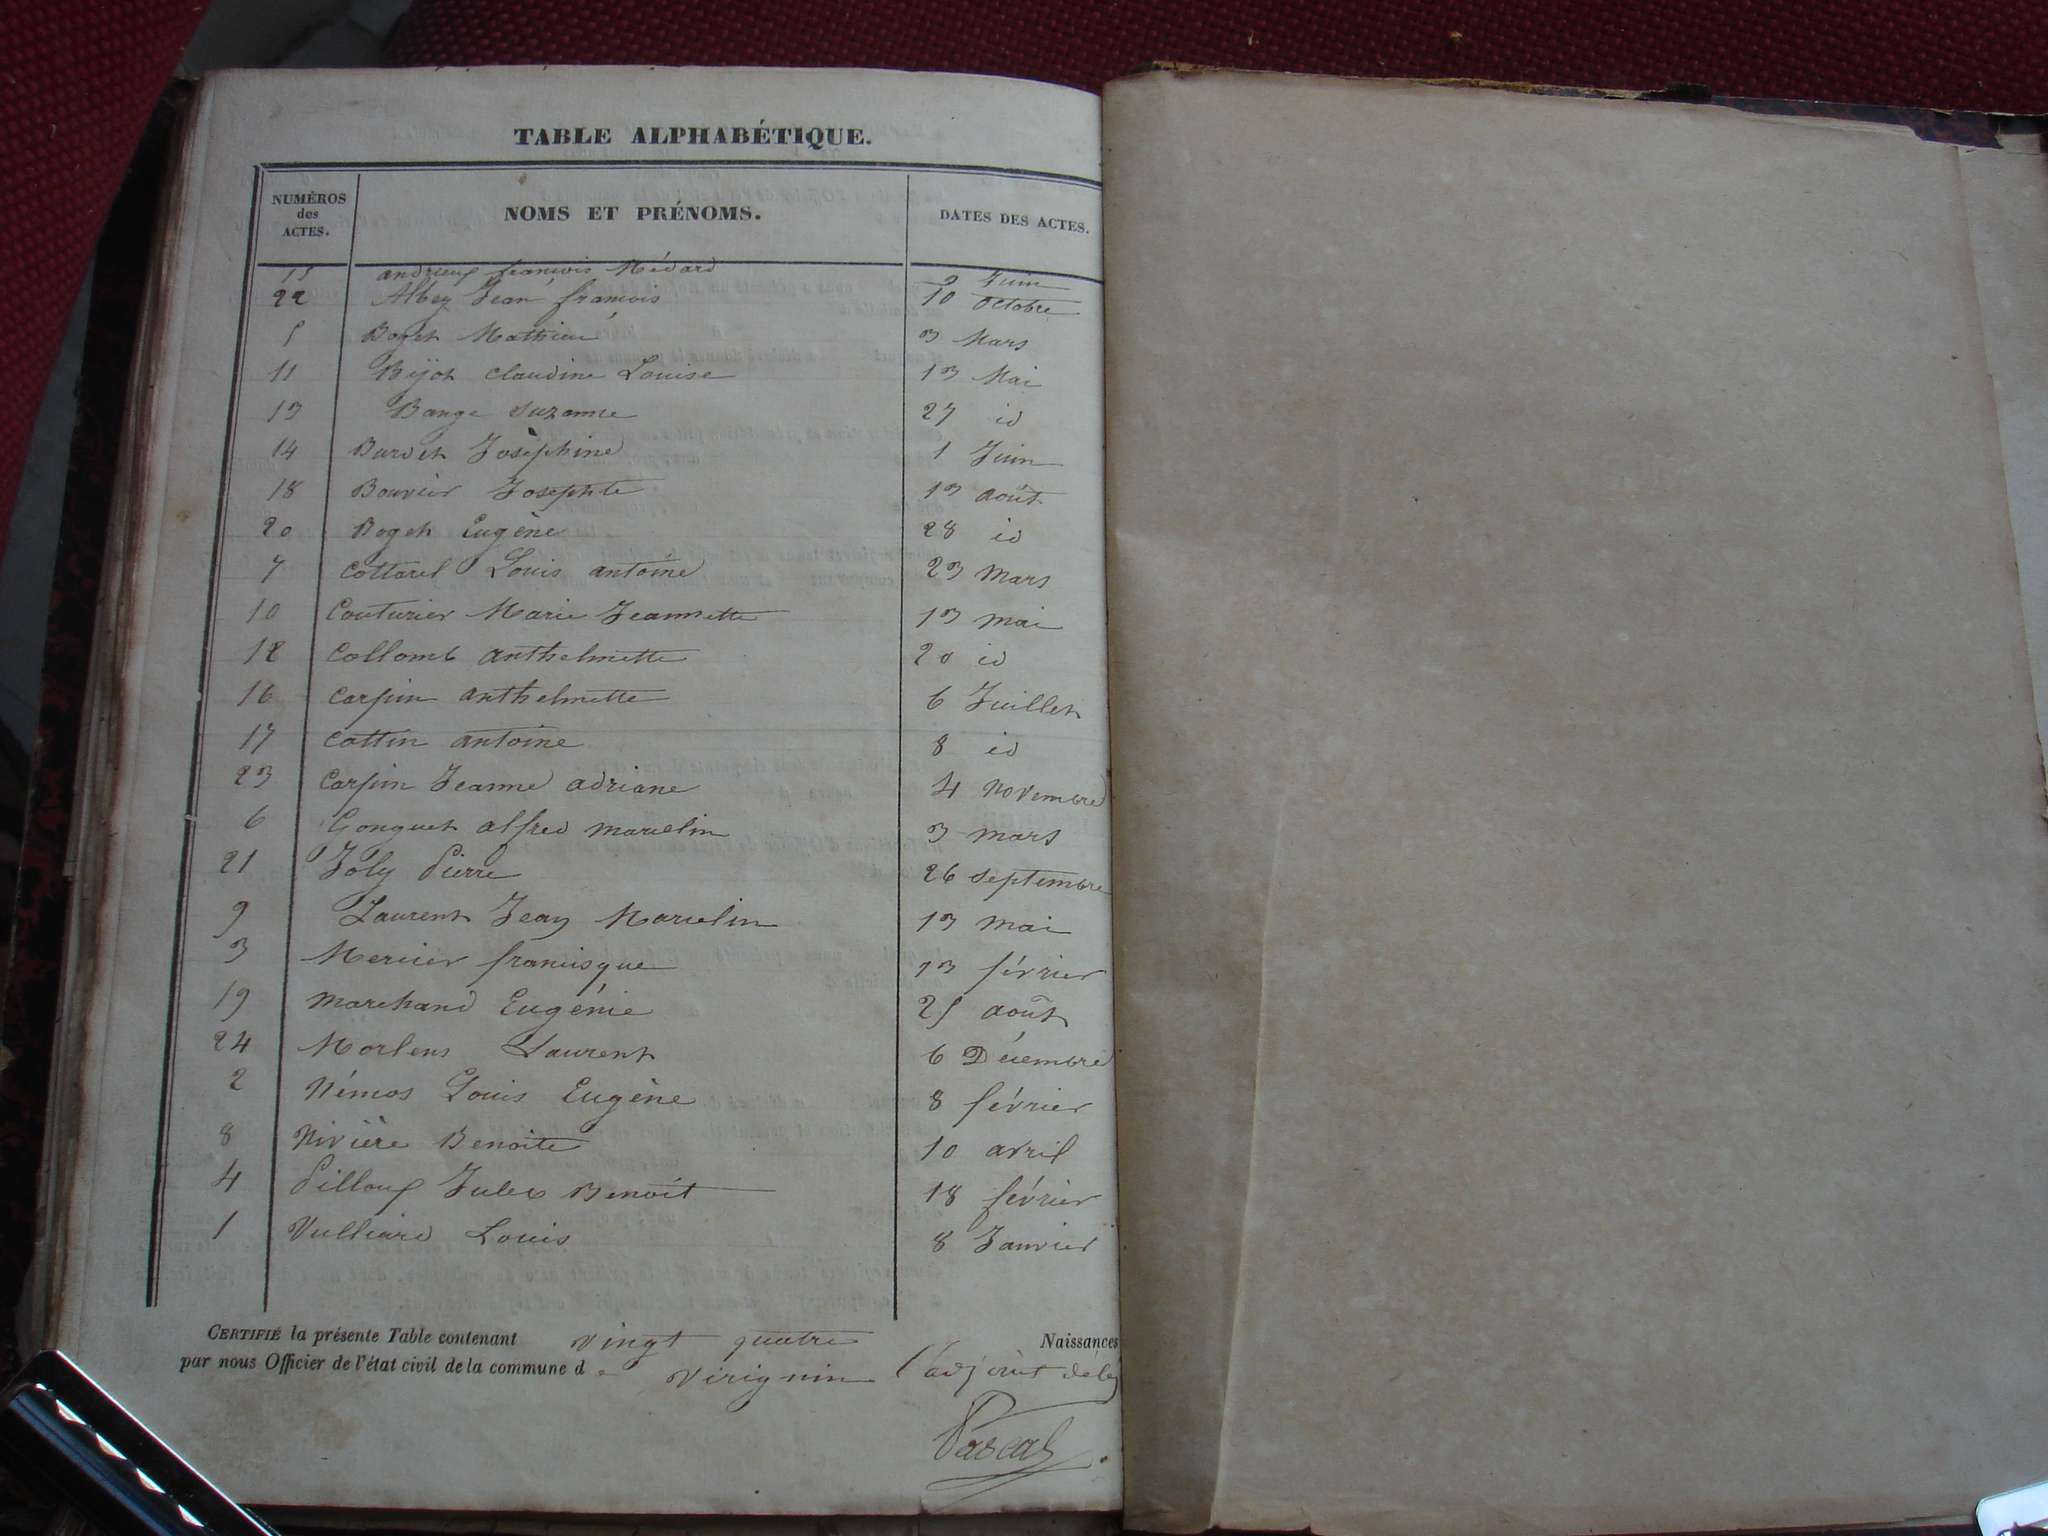 TABLE ALPHABÉTIQUE.
NUMÉROS des ACTES. NOMS ET PRÉNOMS. DATES DES ACTES.
15 andrieux françois Médard 9 Juin
22 Albey Jean françois 10 Octobre
5 Boget Mathieu 3 Mars
11 Bijot Claudine Louise 13 Mai
13 Bange Suzanne 27 id
14 Bardet Josèphine 1 Juin
18 Bouvier Josephte 13 août
20 Boget Eugène 28 id
7 Cottarel Louis antoine 23 mars
10 Couturier Marie Jeannette 13 mai
12 Collomb anthelmette 20 id
16 Carpin anthelmette 6 Juillet
17 Cottin antoine 8 id
23 Carpin Jeanne adriane 4 Novembre
6 Gonguet alfred marcelin 3 mars
21 Joly Pierre 26 septembre
9 Laurent Jean Marcelin 13 mai
3 Mercier francisque 13 février
19 Marchand Eugénie 25 août
24 Morlens Laurent 6 Décembre
2 Némos Louis Eugène 8 février
8 Nivière Benoite 10 avril
4 Pilloux Jules Benoit 18 février
1 Vulliard Louis 8 Janvier
CERTIFIÉ la présente Table contenant vingt quatre Naissances
par nous Officier de l'état civil de la commune de Virignin l'adjoint délég
Pascal